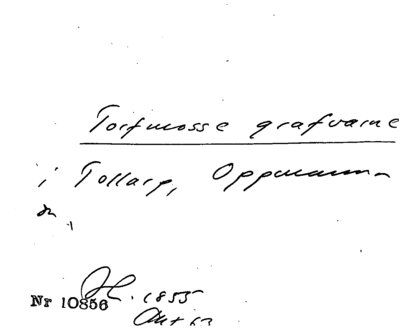 Torfmosse grafvarne
i Tollarp, Oppmanna
Nr 10856
1855